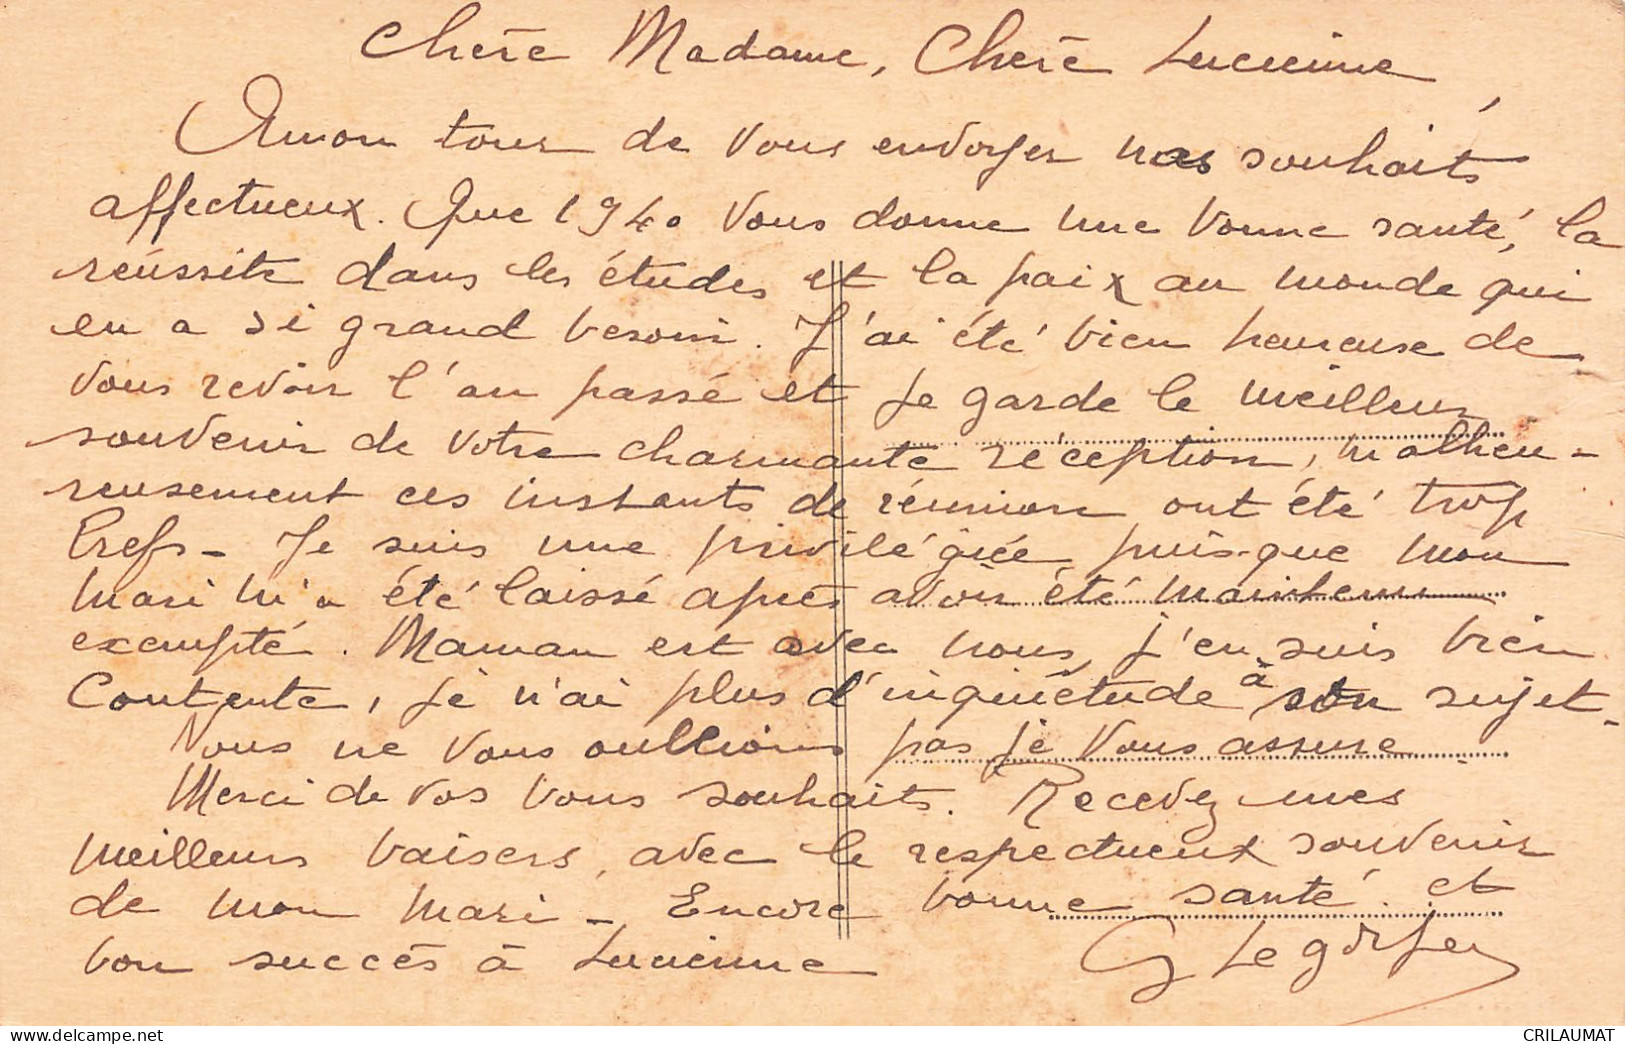 Chère Madame, Chère Lucienne,
A mon tour de vous envoyer nos souhaits
affectueux. Que 1940 vous donne une bonne santé, la
réussite dans les études et la paix au monde qui
en a si grand besoin. J'ai été bien heureuse de
vous revoir l'an passé et je garde le meilleur
souvenir de votre charmante réception, malheu-
reusement ces instants de réunion ont été trop
brefs - Je suis une privilégiée puis-que mon
mari m'a été laissé après avoir été maintenu
exempté. Maman est avec nous, j'en suis bien
contente, je n'ai plus d'inquiétude à son sujet.
Nous ne vous oublions pas je vous assure
Merci de vos bons souhaits. Recevez mes
meilleurs baisers, avec le respectueux souvenir
de mon mari - Encore bonne santé et
bon succès à Lucienne
G Le
delcampe.net
CRILAUMAT